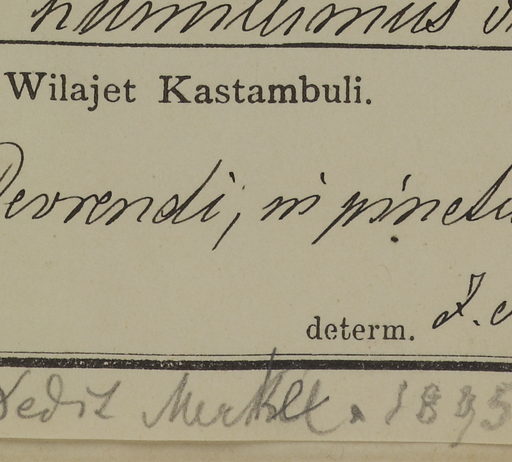 humillimus
Wilajet Kastambuli.
Devrendi, in pinetis
determ. J.
Dedit Merkl. 1895